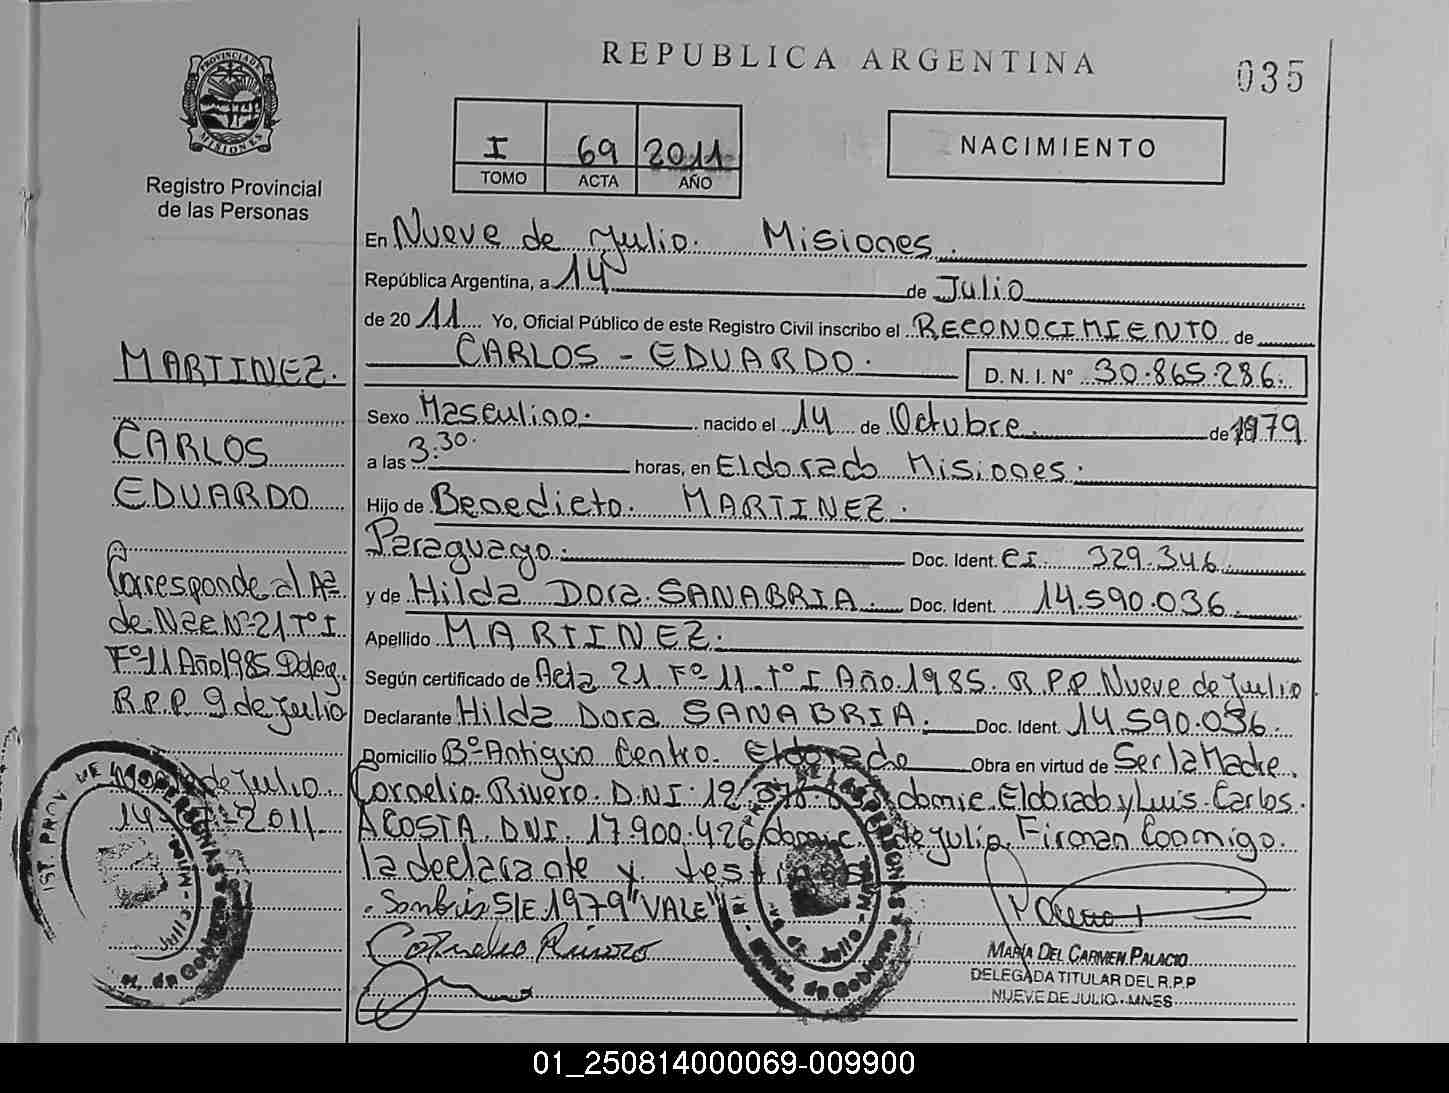 REPUBLICA ARGENTINA
035
PROVINCIA DE
MISIONES
Registro Provincial
de las Personas
I 69 2011
TOMO ACTA AÑO
NACIMIENTO
En Nueve de Julio. Misiones.
República Argentina, a 14 de Julio
de 2011 Yo, Oficial Público de este Registro Civil inscribo el RECONOCIMIENTO de
CARLOS - EDUARDO. D. N. I. Nº 30.865.286.
Sexo Masculino. nacido el 14 de Octubre. de 1979
a las 3:30. horas, en Eldorado Misiones.
Hijo de Benedicto. MARTINEZ.
Paraguayo. Doc. Ident. CI. 329.346.
y de Hilda Dora SANABRIA. Doc. Ident. 14.590.036.
Apellido MARTINEZ.
Según certificado de Acta 21 Fº 11 Tº I Año 1985. R.P.P Nueve de Julio
Declarante Hilda Dora SANABRIA. Doc. Ident. 14.590.036.
Domicilio Bº Antiguo Centro. Eldorado Obra en virtud de Ser la Madre.
Cornelio Rivero. D.N.I. 12 domic. Eldorado y Luis Carlos.
ACOSTA. D.N.I. 17.900.426 domic. de Julio, Firman Conmigo.
la declarante y
S/E 1979 "VALE"
Cornelio Rivero
MARIA DEL CARMEN PALACIO
DELEGADA TITULAR DEL R.P.P
NUEVE DE JULIO - MNES
MARTINEZ.
CARLOS
EDUARDO
Corresponde al Aª
de Nac Nº 21 Tº I
Fº 11 Año 1985 Deleg.
R.P.P. 9 de Julio
de Julio
14 - 2011
01_250814000069-009900